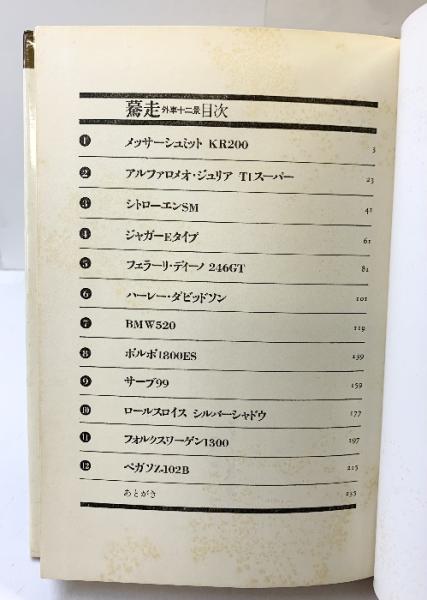 驀走 外車十二景 目次
❶ メッサーシュミット KR200 3
❷ アルファロメオ・ジュリア TIスーパー 23
❸ シトローエンSM 41
❹ ジャガーEタイプ 61
❺ フェラーリ・ディーノ 246GT 81
❻ ハーレー・ダビッドソン 101
❼ BMW520 119
❽ ボルボ1800ES 139
❾ サーブ99 159
❿ ロールスロイス シルバーシャドウ 177
⓫ フォルクスワーゲン1300 197
⓬ ペガソZ-102B 215
あとがき 235